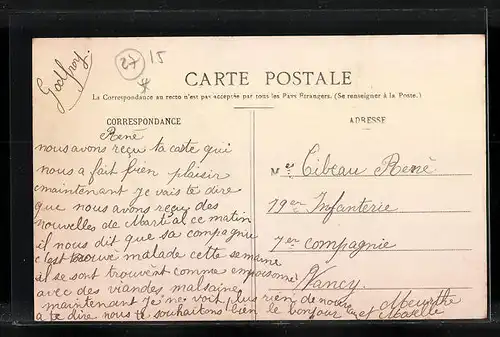 Godfroy.
27
15
CARTE POSTALE
La Correspondance au recto n'est pas acceptée par tous les Pays Étrangers. (Se renseigner à la Poste.)
CORRESPONDANCE
René
nous avons reçu ta carte qui
nous a fait bien plaisir
maintenant Je vais te dire
que nous avons reçu des
nouvelles de Martial ce matin
il nous dit que sa compagnie
c'est trouvé malade cette semaine
il se sont trouvent comme empoisonné
avec des viandes malsaine
maintenant Je ne voit plus rien de nouveau
a te dire nous te souhaitons bien le bonjour
ADRESSE
Mr Cibeau René
79em Infanterie
7em compagnie
Nancy
Meurthe
et Moselle